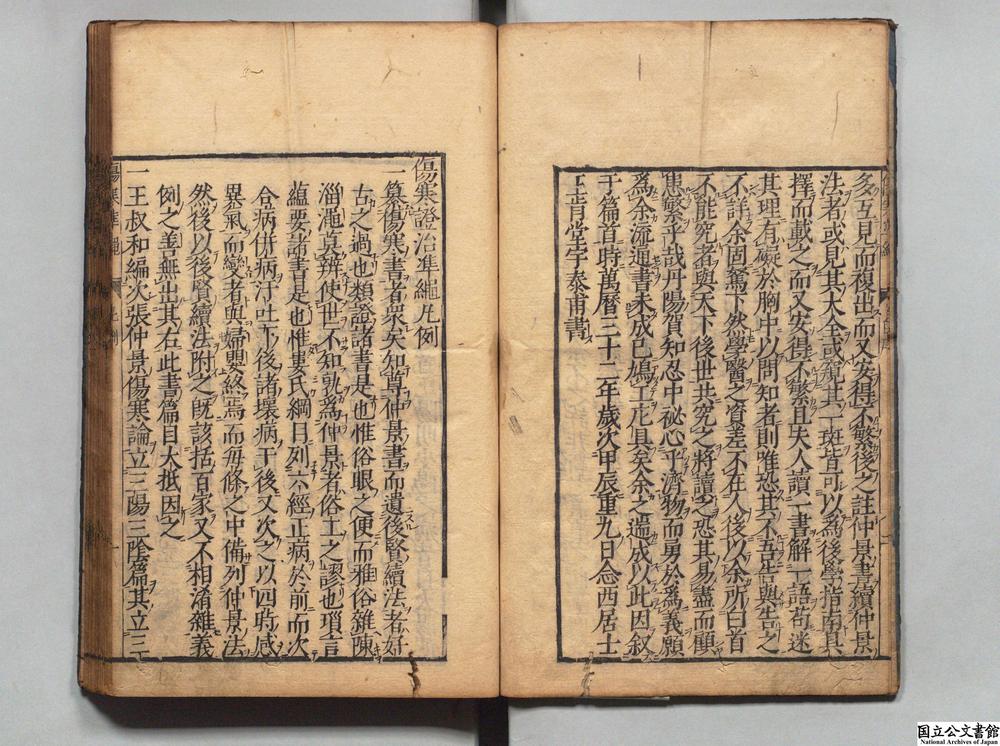 多互見而復出而又安得不繁後之註仲景書續仲景
法者或見其大全或窺其一斑皆可以為後學指南具
擇而載之而又安得不繁且夫人讀一書解一語苟迷
其理有礙於胸中以問知者則唯恐其不吾告與告之
不詳余固駑下然學醫之資差不在人後以余所白首
不能究者與天下後世共究之將讀之恐其易盡而顧
患繁乎哉丹陽賀知忍中祕心乎濟物而勇於為義願
為余流通書未成已鳩工庀具矣余之遄成以此因敘
于篇首時萬曆三十二年歲次甲辰重九日念西居士
王肯堂宇泰甫書
傷寒證治準繩凡例
一纂傷寒書者衆矣知尊仲景書而遺後賢續法者好
古之過也類證諸書是也惟俗眼之便而雅俗雜陳
淄澠莫辨使世不知孰為仲景者俗工之謬也瑣言
蘊要諸書是也惟婁氏綱目列六經正病於前而次
合病併病汗吐下後諸壞病于後又次之以四時感
異氣而變者與婦嬰終焉而每條之中備列仲景法
然後以後賢續法附之既該括百家又不相淆雜義
例之善無出其右此書篇目大抵因之
一王叔和編次張仲景傷寒論立三陽三陰篇其立三
国立公文書館
National Archives of Japan